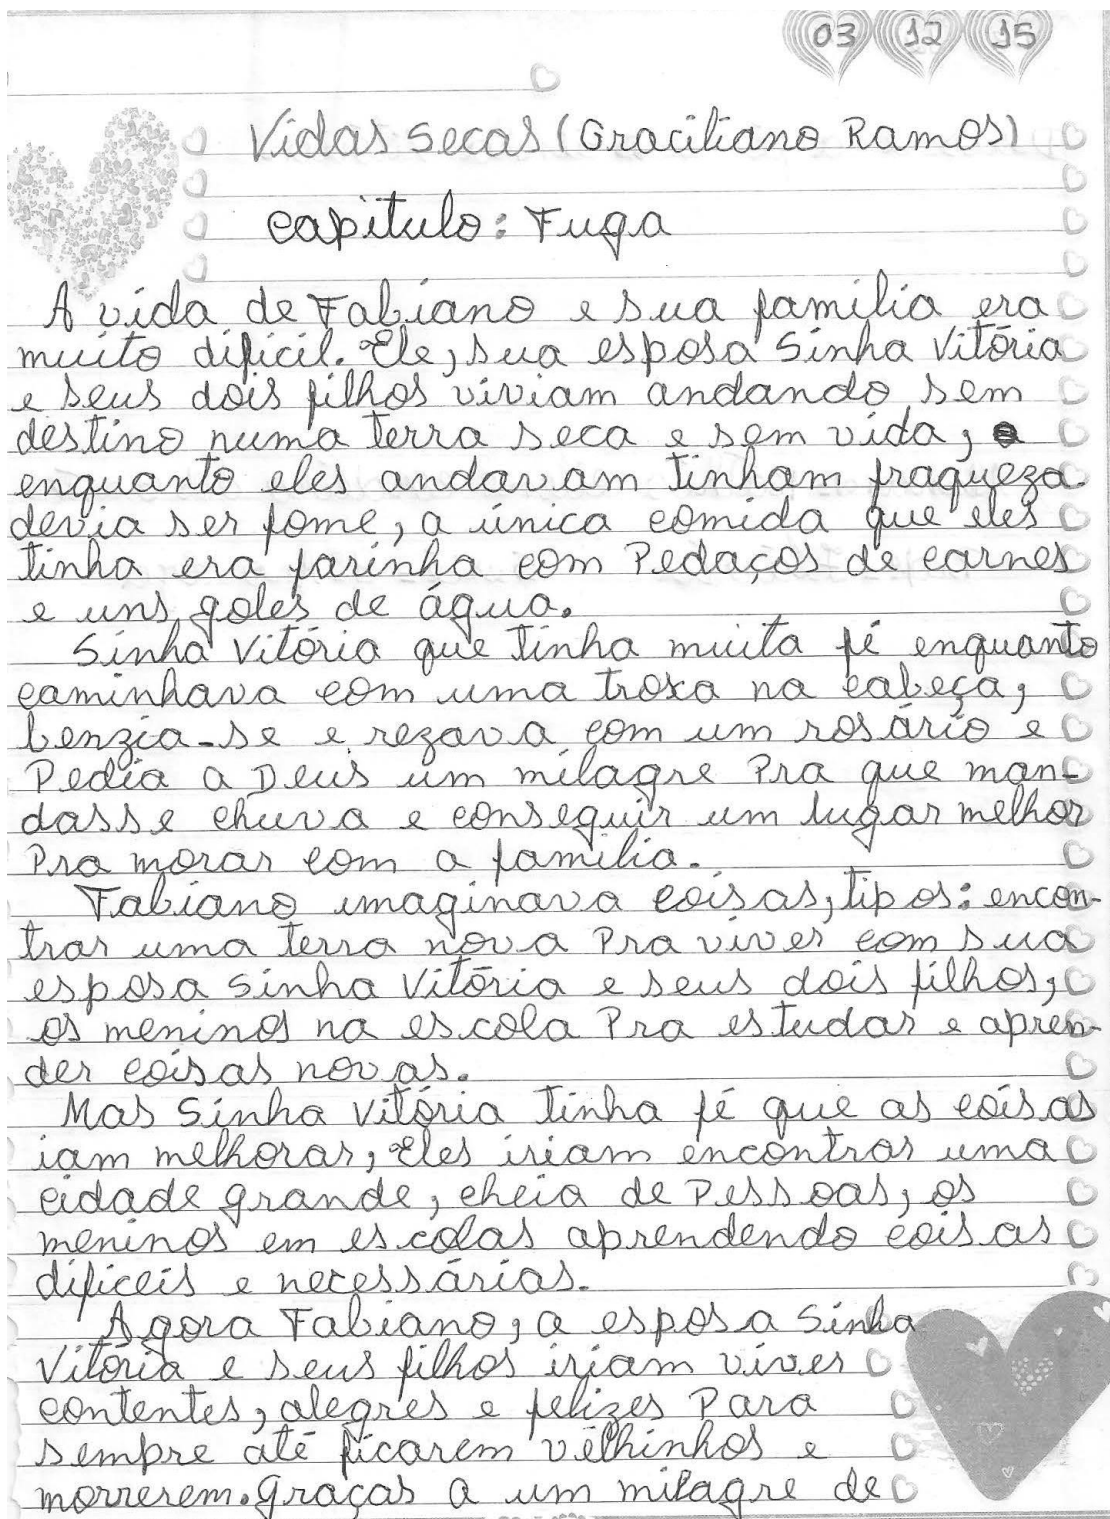 03 12 15
Vidas Secas (Graciliano Ramos)
Capitulo: Fuga
A vida de Fabiano e sua família era
muito dificil. Ele, sua esposa Sinha Vitória
e seus dois filhos viviam andando sem
destino numa terra seca e sem vida,
enquanto eles andavam tinham fraqueza
devia ser fome, a única comida que eles
tinha era farinha com Pedaços de carnes
e uns goles de água.
Sinha Vitória que tinha muita fé enquanto
caminhava com uma troxa na cabeça,
benzia-se e rezava com um rosário e
Pedia a Deus um milagre Pra que man-
dasse chuva e conseguir um lugar melhor
Pra morar com a família.
Fabiano imaginava coisas, tipos: encon-
trar uma terra nova Pra viver com sua
esposa Sinha Vitória e seus dois filhos,
os meninos na escola Pra estudar e apren-
der coisas novas.
Mas Sinha Vitória tinha fé que as coisas
iam melhorar, Eles iriam encontrar uma
cidade grande, cheia de Pessoas, os
meninos em escolas aprendendo coisas
dificeis e necessárias.
Agora Fabiano, a esposa Sinha
Vitória e seus filhos iriam viver
contentes, alegres e felizes Para
sempre até ficarem velhinhos e
morrerem. graças a um milagre de